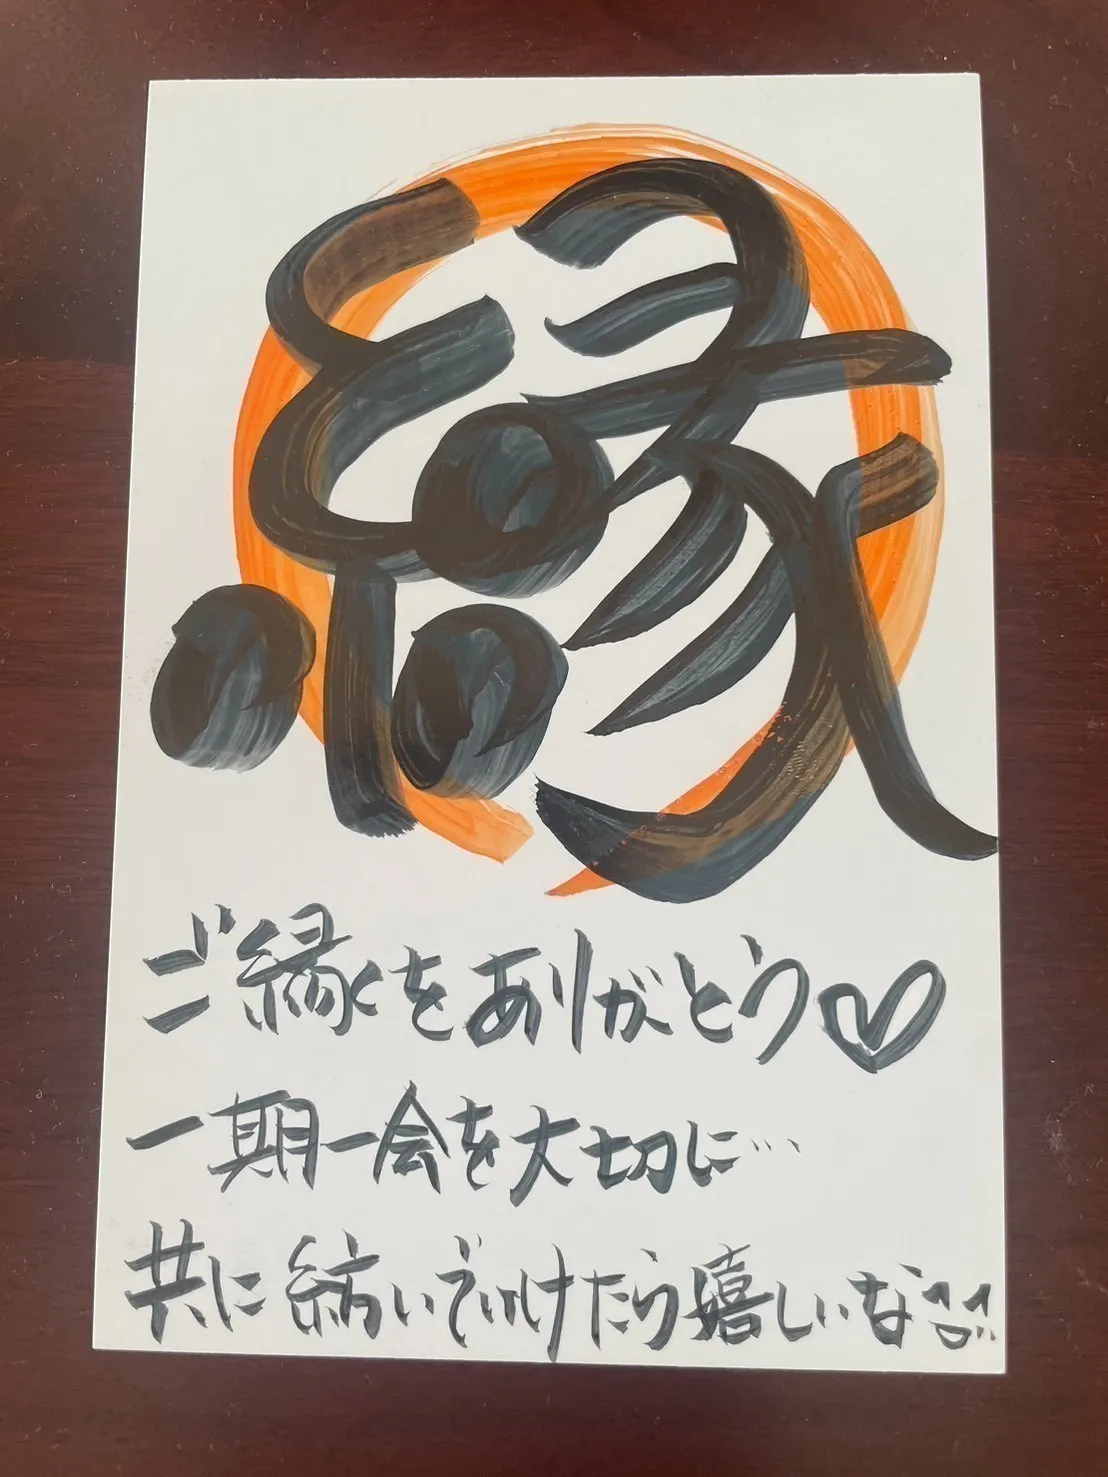 縁
ご縁をありがとう♡
一期一会を大切に…
共に紡いでいけたら嬉しいな